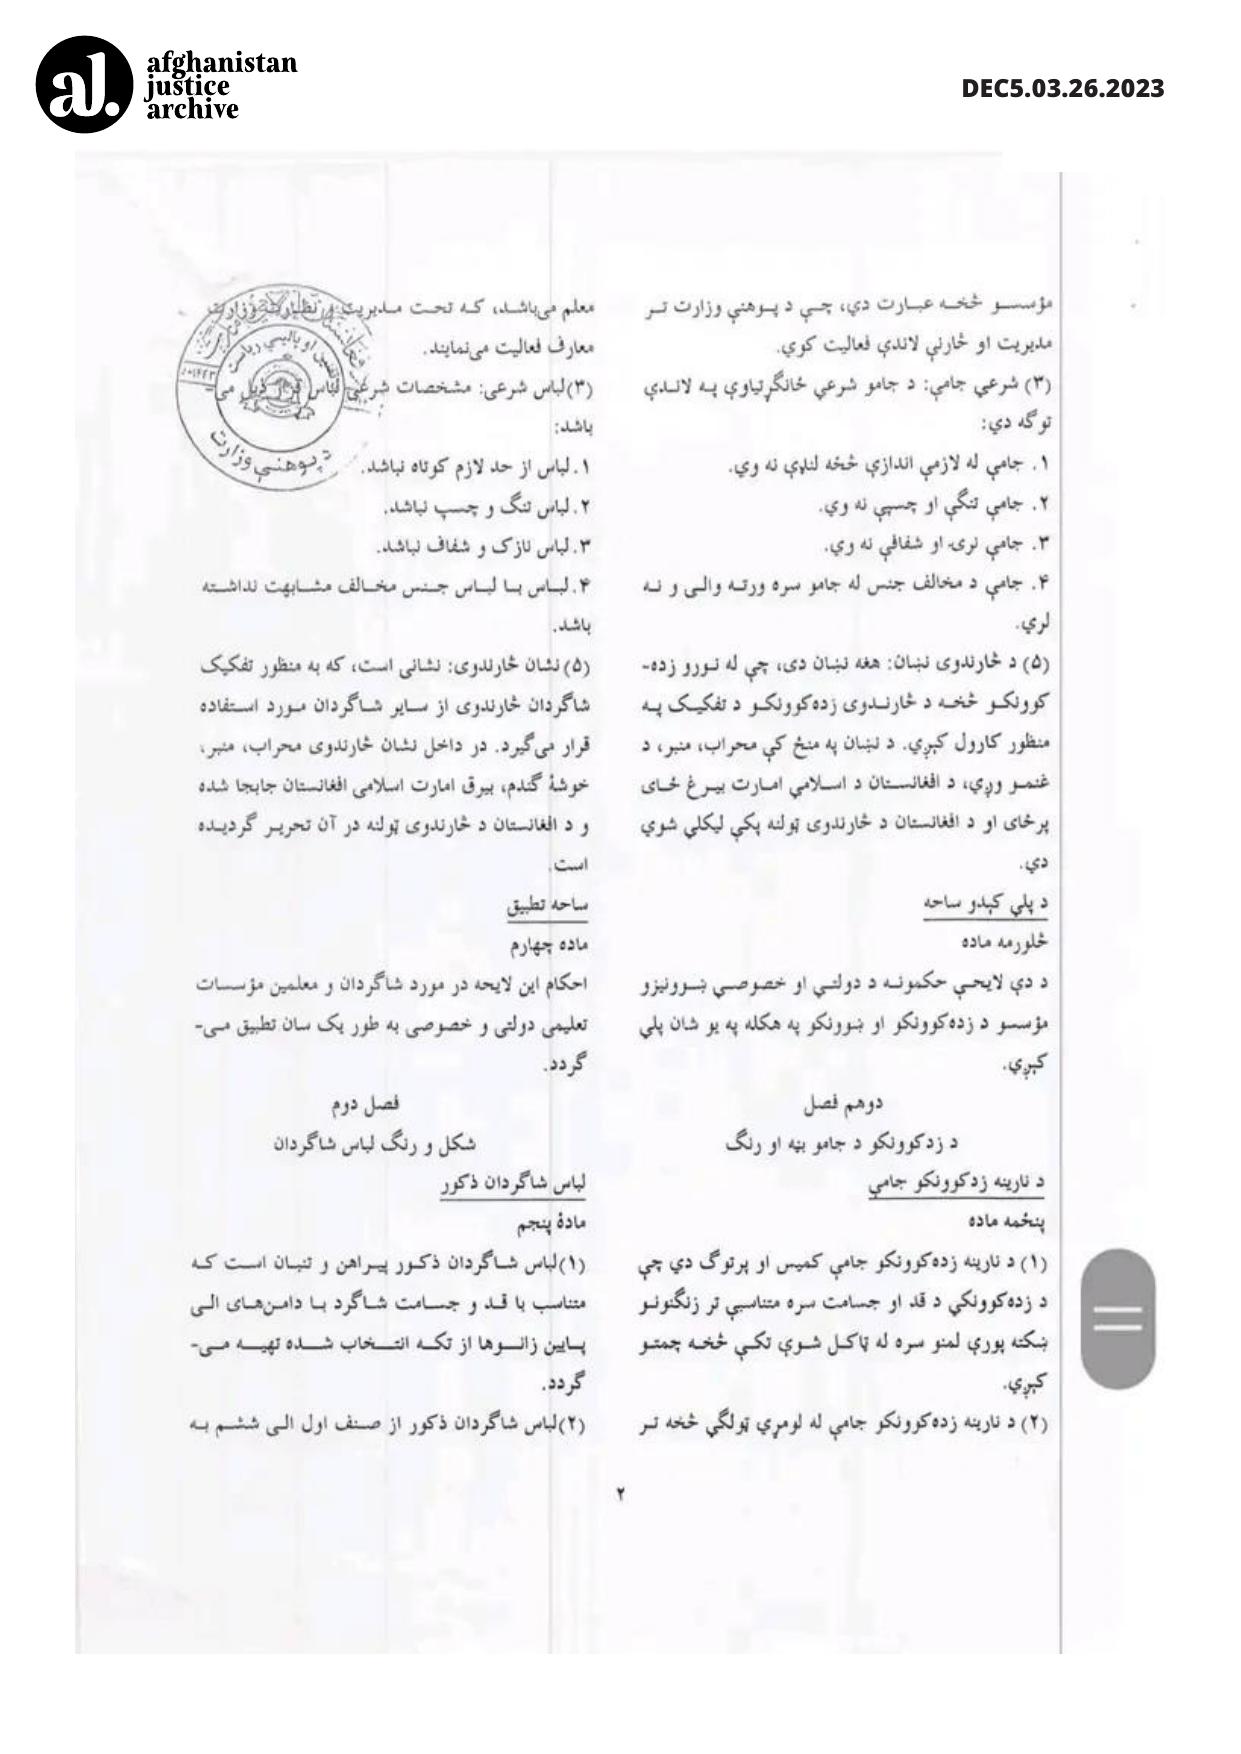 afghanistan
justice
archive
DEC5.03.26.2023
مؤسسو څخه عبارت دي، چې د پوهنې وزارت تر
مدیریت او څارنې لاندې فعالیت کوي.
(۳) شرعي جامې: د جامو شرعي ځانګړتیاوې په لاندې
توګه دي:
۱. جامې له لازمې اندازې څخه لنډې نه وي.
۲. جامې تنګې او چسپې نه وي.
۳. جامې نرۍ او شفافې نه وي.
۴. جامې د مخالف جنس له جامو سره ورته والی و نه
لري.
(۵) د څارندوی نښان: هغه نښان دی، چې له نورو زده-
کوونکو څخه د څارندوی زده‌کوونکو د تفکیک په
منظور کارول کېږي. د نښان په منځ کې محراب، منبر، د
غنمو وږي، د افغانستان د اسلامي امارت بیرغ ځای
پرځای او د افغانستان د څارندوی ټولنه پکې لیکلې شوې
دي.
د پلي کېدو ساحه
څلورمه ماده
د دې لایحې حکمونه د دولتي او خصوصي ښوونیزو
مؤسسو د زده‌کوونکو او ښوونکو په هکله په یو شان پلي
کېږي.
دوهم فصل
د زدکوونکو د جامو بڼه او رنګ
د نارینه زدکوونکو جامې
پنځمه ماده
(۱) د نارینه زده‌کوونکو جامې کمیس او پرتوګ دي چې
د زده‌کوونکي د قد او جسامت سره متناسبې تر زنګنونو
ښکته پورې لمنو سره له ټاکل شوې تکې څخه چمتو
کېږي.
(۲) د نارینه زده‌کوونکو جامې له لومړي ټولګي څخه تر
معلم می‌باشد، که تحت مدیریت و نظارت وزارت
معارف فعالیت می‌نمایند.
(۳)لباس شرعی: مشخصات شرعی لباس قرار ذیل می-
باشد:
۱.لباس از حد لازم کوتاه نباشد.
۲.لباس تنگ و چسپ نباشد.
۳.لباس نازک و شفاف نباشد.
۴.لباس با لباس جنس مخالف مشابهت نداشته
باشد.
(۵)نشان څارندوی: نشانی است، که به منظور تفکیک
شاگردان څارندوی از سایر شاگردان مورد استفاده
قرار می‌گیرد. در داخل نشان څارندوی محراب، منبر،
خوشهٔ گندم، بیرق امارت اسلامی افغانستان جابجا شده
و د افغانستان د څارندوی ټولنه در آن تحریر گردیده
است.
ساحه تطبیق
ماده چهارم
احکام این لایحه در مورد شاگردان و معلمین مؤسسات
تعلیمی دولتی و خصوصی به طور یک سان تطبیق می-
گردد.
فصل دوم
شکل و رنگ لباس شاگردان
لباس شاگردان ذکور
مادهٔ پنجم
(۱)لباس شاگردان ذکور پیراهن و تنبان است که
متناسب با قد و جسامت شاگرد با دامن‌های الی
پایین زانوها از تکه انتخاب شده تهیه می-
گردد.
(۲)لباس شاگردان ذکور از صنف اول الی ششم به
د پوهنې وزارت
۲